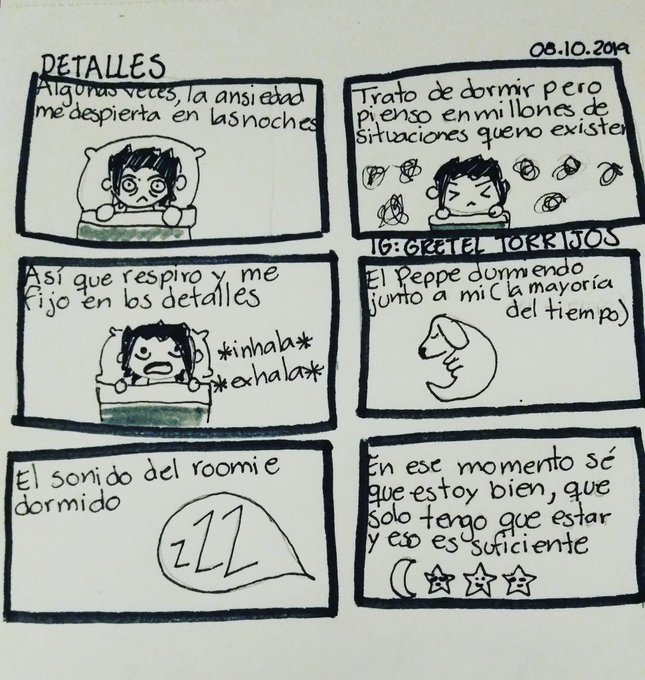 DETALLES
08.10.2019
Algunas veces, la ansiedad
me despierta en las noches
Trato de dormir pero
pienso en millones de
situaciones que no existen
IG: GRETEL TORRIJOS
Así que respiro y me
fijo en los detalles
*inhala*
*exhala*
El Peppe durmiendo
junto a mi (la mayoría
del tiempo)
El sonido del roomie
dormido
zZZ
En ese momento sé
que estoy bien, que
solo tengo que estar
y eso es suficiente